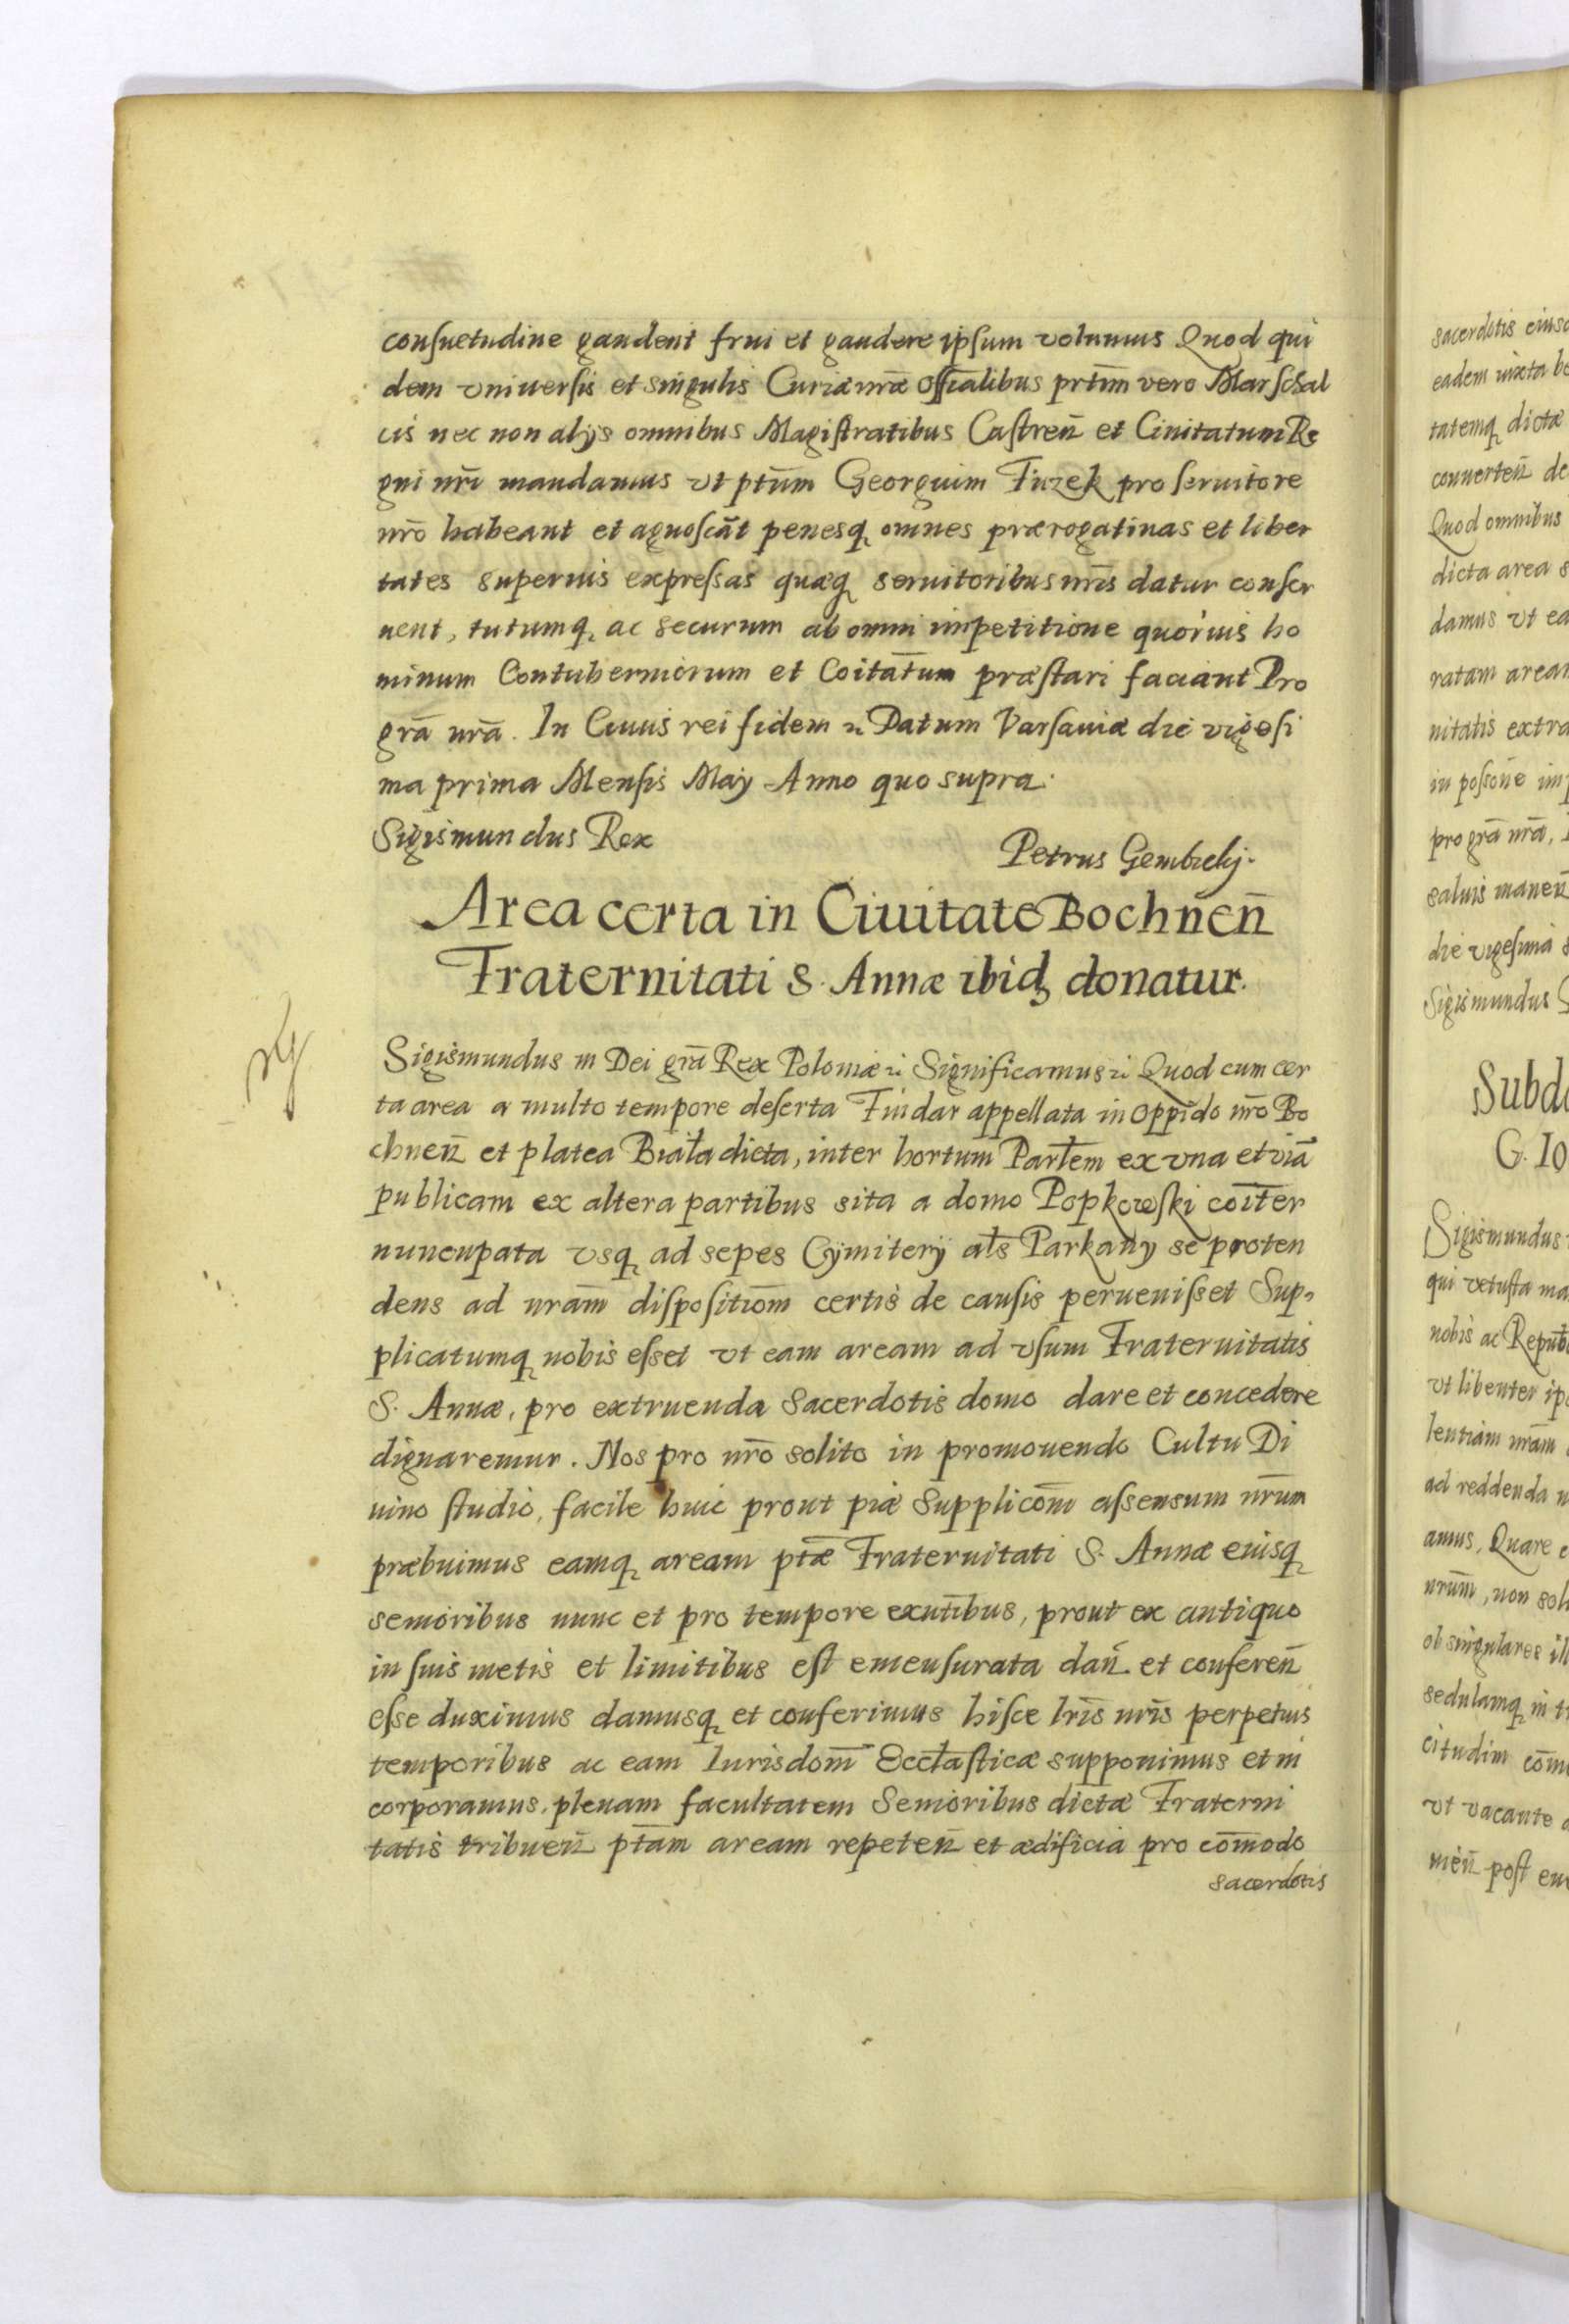 consuetudine gaudent frui et gaudere ipsum volumus Quod qui
dem vniuersis et singulis Curiæ nr̃æ offĩalibus prt̃im vero Marschal
cis nec non alijs omnibus Magistratibus Castren̄ et Ciuitatum Re
gni nr̃i mandamus vt pt̃um Georgium Fuzek pro seruitore
nr̃o habeant et agnoscãt penesq̨ omnes prærogatiuas et liber
tates superius expressas quæq̨ seruitoribus nr̃is datur conser
uent, tutumq̨ ac securum ab omni impetitione quoruis ho
minum Contuberniorum et Coitãtum præstari faciant Pro
grã nrã. In Cuius rei fidem ꝛ Datum Varsauiæ die vigesi
ma prima Mensis Maÿ Anno quo supra.
Sigismundus Rex
Petrus Gembickj.
Area certa in Ciuitate Bochnen̄
Fraternitati S. Annæ ibidꝫ donatur.
Sigismundus III Dei grã Rex Poloniæ ꝛ Significamus ꝛ Quod cum cer
ta area a multo tempore deserta Fuidar appellata in oppido nr̃o Bo
chnen̄ et platea Biała dicta, inter hortum Parłem ex vna et viã
publicam ex altera partibus sita a domo Popkowski coit̃er
nuncupata vsq̨ ad sepes Cÿmiterÿ ałs Parkany se proten
dens ad nram̃ dispositiom̃ certis de causis peruenisset Sup,
plicatumq̨ nobis esset vt eam aream ad vsum Fraternitatis
S. Annæ, pro extruenda Sacerdotis domo dare et concedere
dignaremur. Nos pro nr̃o solito in promouendo Cultu Di
uino studio, facile huic prout piæ Supplicom̃ assensum nr̃um
præbuimus eamq̨ aream pt̃æ Fraternitati S. Annæ eiusq̨
senioribus nunc et pro tempore exnt̃ibus, prout ex antiquo
in suis metis et limitibus est emensurata dan̄. et conferen̄
esse duximus damusq̨ et conferimus hisce lr̃is nr̃is perpetuis
temporibus ac eam Iurisdom̃ Eccłasticæ supponimus et in
corporamus, plenam facultatem Senioribus dictæ Fraterni
tatis tribuen̄ pt̃am aream repeten̄ et ædificia pro com̃odo
sacerdotis
sacerdotis eiusd
tatemq̨ dictæ
conuerten̄ de
Quod omnibus
dicta area s
damus vt ea
ratam aream
nitatis extra
pro grã nrã,
saluis manen̄
die vigesima s
Sigismundus
Subd
G. Io
Sigismundus
qui vetusta ma
nobis ac Repub
vt libenter ip
lentiam nram̃
ad reddenda
amus, Quare
nrum̃, non sol
ob singulares ill
sedulamq̨ in t
citudim com̃
vt vacante
men̄ post